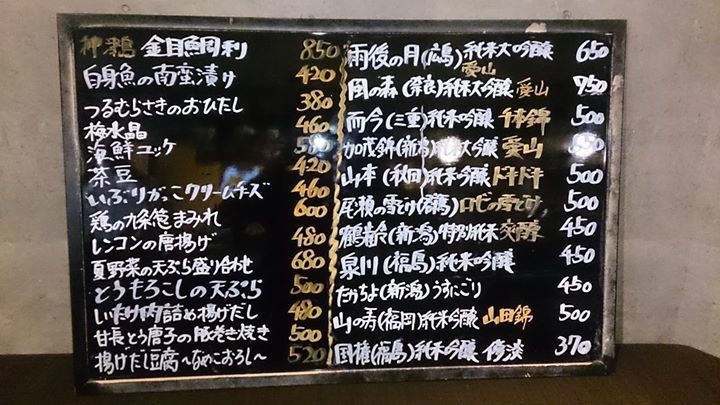 神津島 金目鯛刺 850
白身魚の南蛮漬け 420
つるむらさきのおひたし 380
梅水晶 460
海鮮ユッケ 580
茶豆 420
いぶりがっこクリームチーズ 460
鶏の九条葱まみれ 600
レンコンの唐揚げ 480
夏野菜の天ぷら盛り合わせ 680
とうもろこしの天ぷら 500
いたけ肉詰め揚げだし 480
甘長とう唐子の豚巻き焼き 500
揚げだし豆腐〜なめこおろし〜 520
雨後の月(広島)純米大吟醸 愛山 650
風の森(奈良)純米大吟醸 愛山 750
而今(三重)純米吟醸 千本錦 500
加茂錦(新潟)純米吟醸 愛山
山本(秋田)純米吟醸 ドキドキ 500
尾瀬の雪どけ(群馬) ロゼの雪どけ 500
鶴齢(新潟)特別純米 爽醇 450
泉川(福島)純米吟醸 450
たかちよ(新潟)うすにごり 450
山の寿(福岡)純米吟醸 山田錦 500
国権(福島)純米吟醸 370